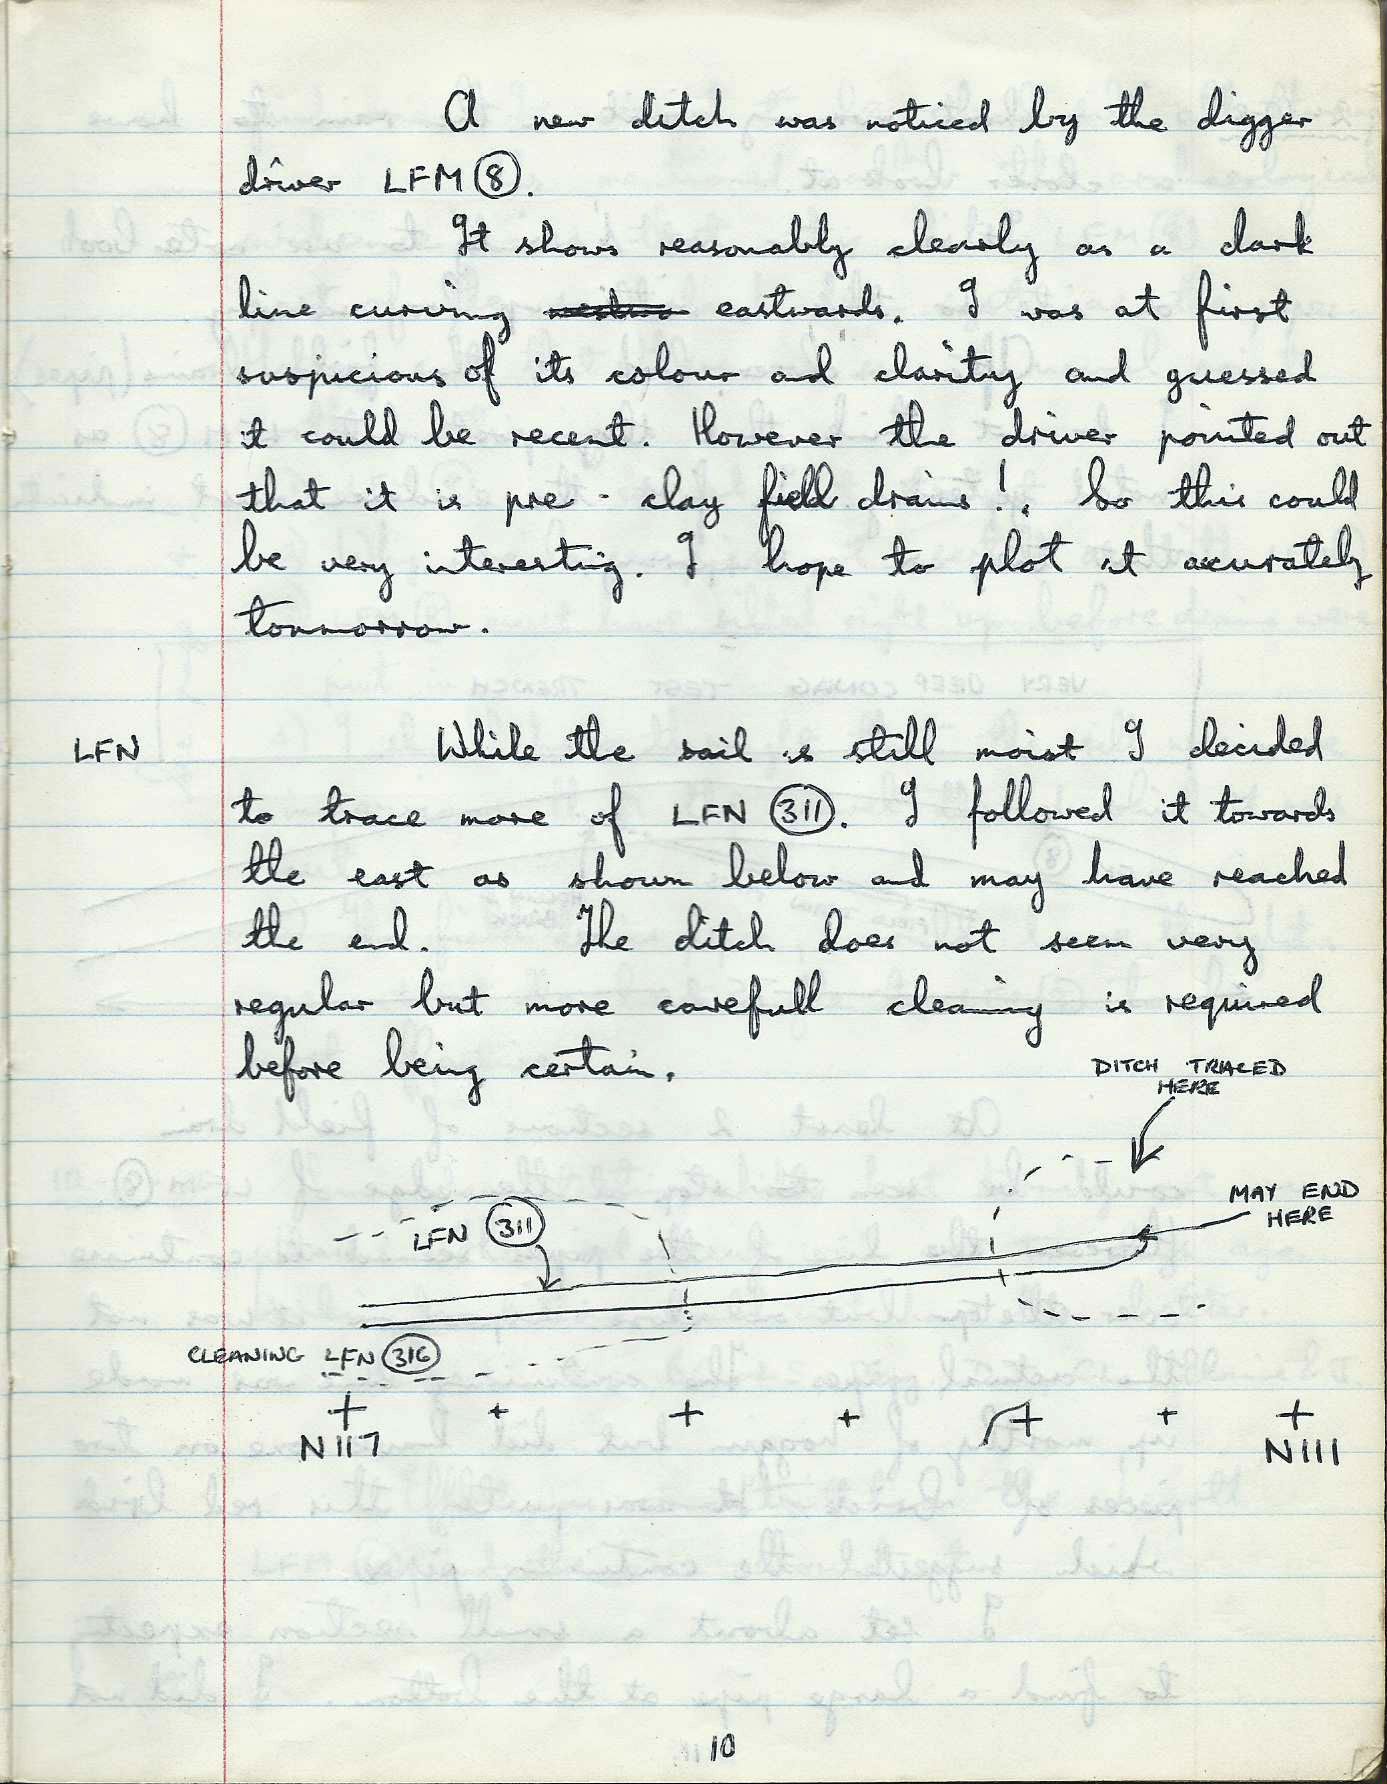 A new ditch was noticed by the digger
driver LFM 8.
It shows reasonably clearly as a dark
line curving eastwards. I was at first
suspicious of its colour and clarity and guessed
it could be recent. However the driver pointed out
that it is pre - clay field drains!. So this could
be very interesting. I hope to plot it accurately
tommorrow.
LFN While the soil is still moist I decided
to trace more of LFN 311. I followed it towards
the east as shown below and may have reached
the end. The ditch does not seem very
regular but more carefull cleaning is required
before being certain.
DITCH TRACED
HERE
MAY END
HERE
LFN 311
CLEANING LFN 316
N117
N111
10